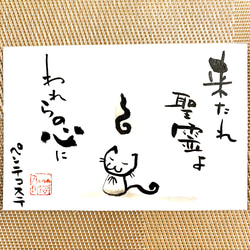 来たれ
聖霊よ
われらの心に
ペンテコステ